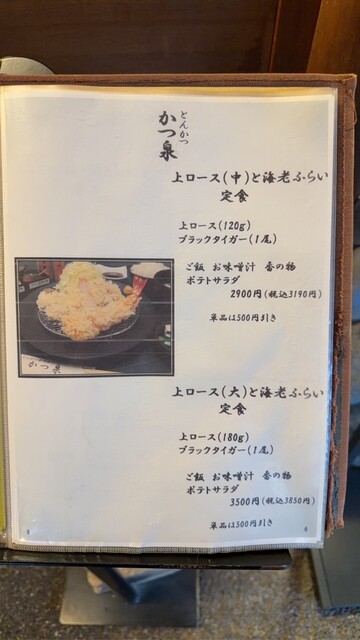 とんかつ
かつ泉
上ロース(中)と海老ふらい
定食
上ロース(120g)
ブラックタイガー(1尾)
ご飯 お味噌汁 香の物
ポテトサラダ
2900円(税込3190円)
単品は500円引き
かつ泉
上ロース(大)と海老ふらい
定食
上ロース(180g)
ブラックタイガー(1尾)
ご飯 お味噌汁 香の物
ポテトサラダ
3500円(税込3850円)
単品は500円引き